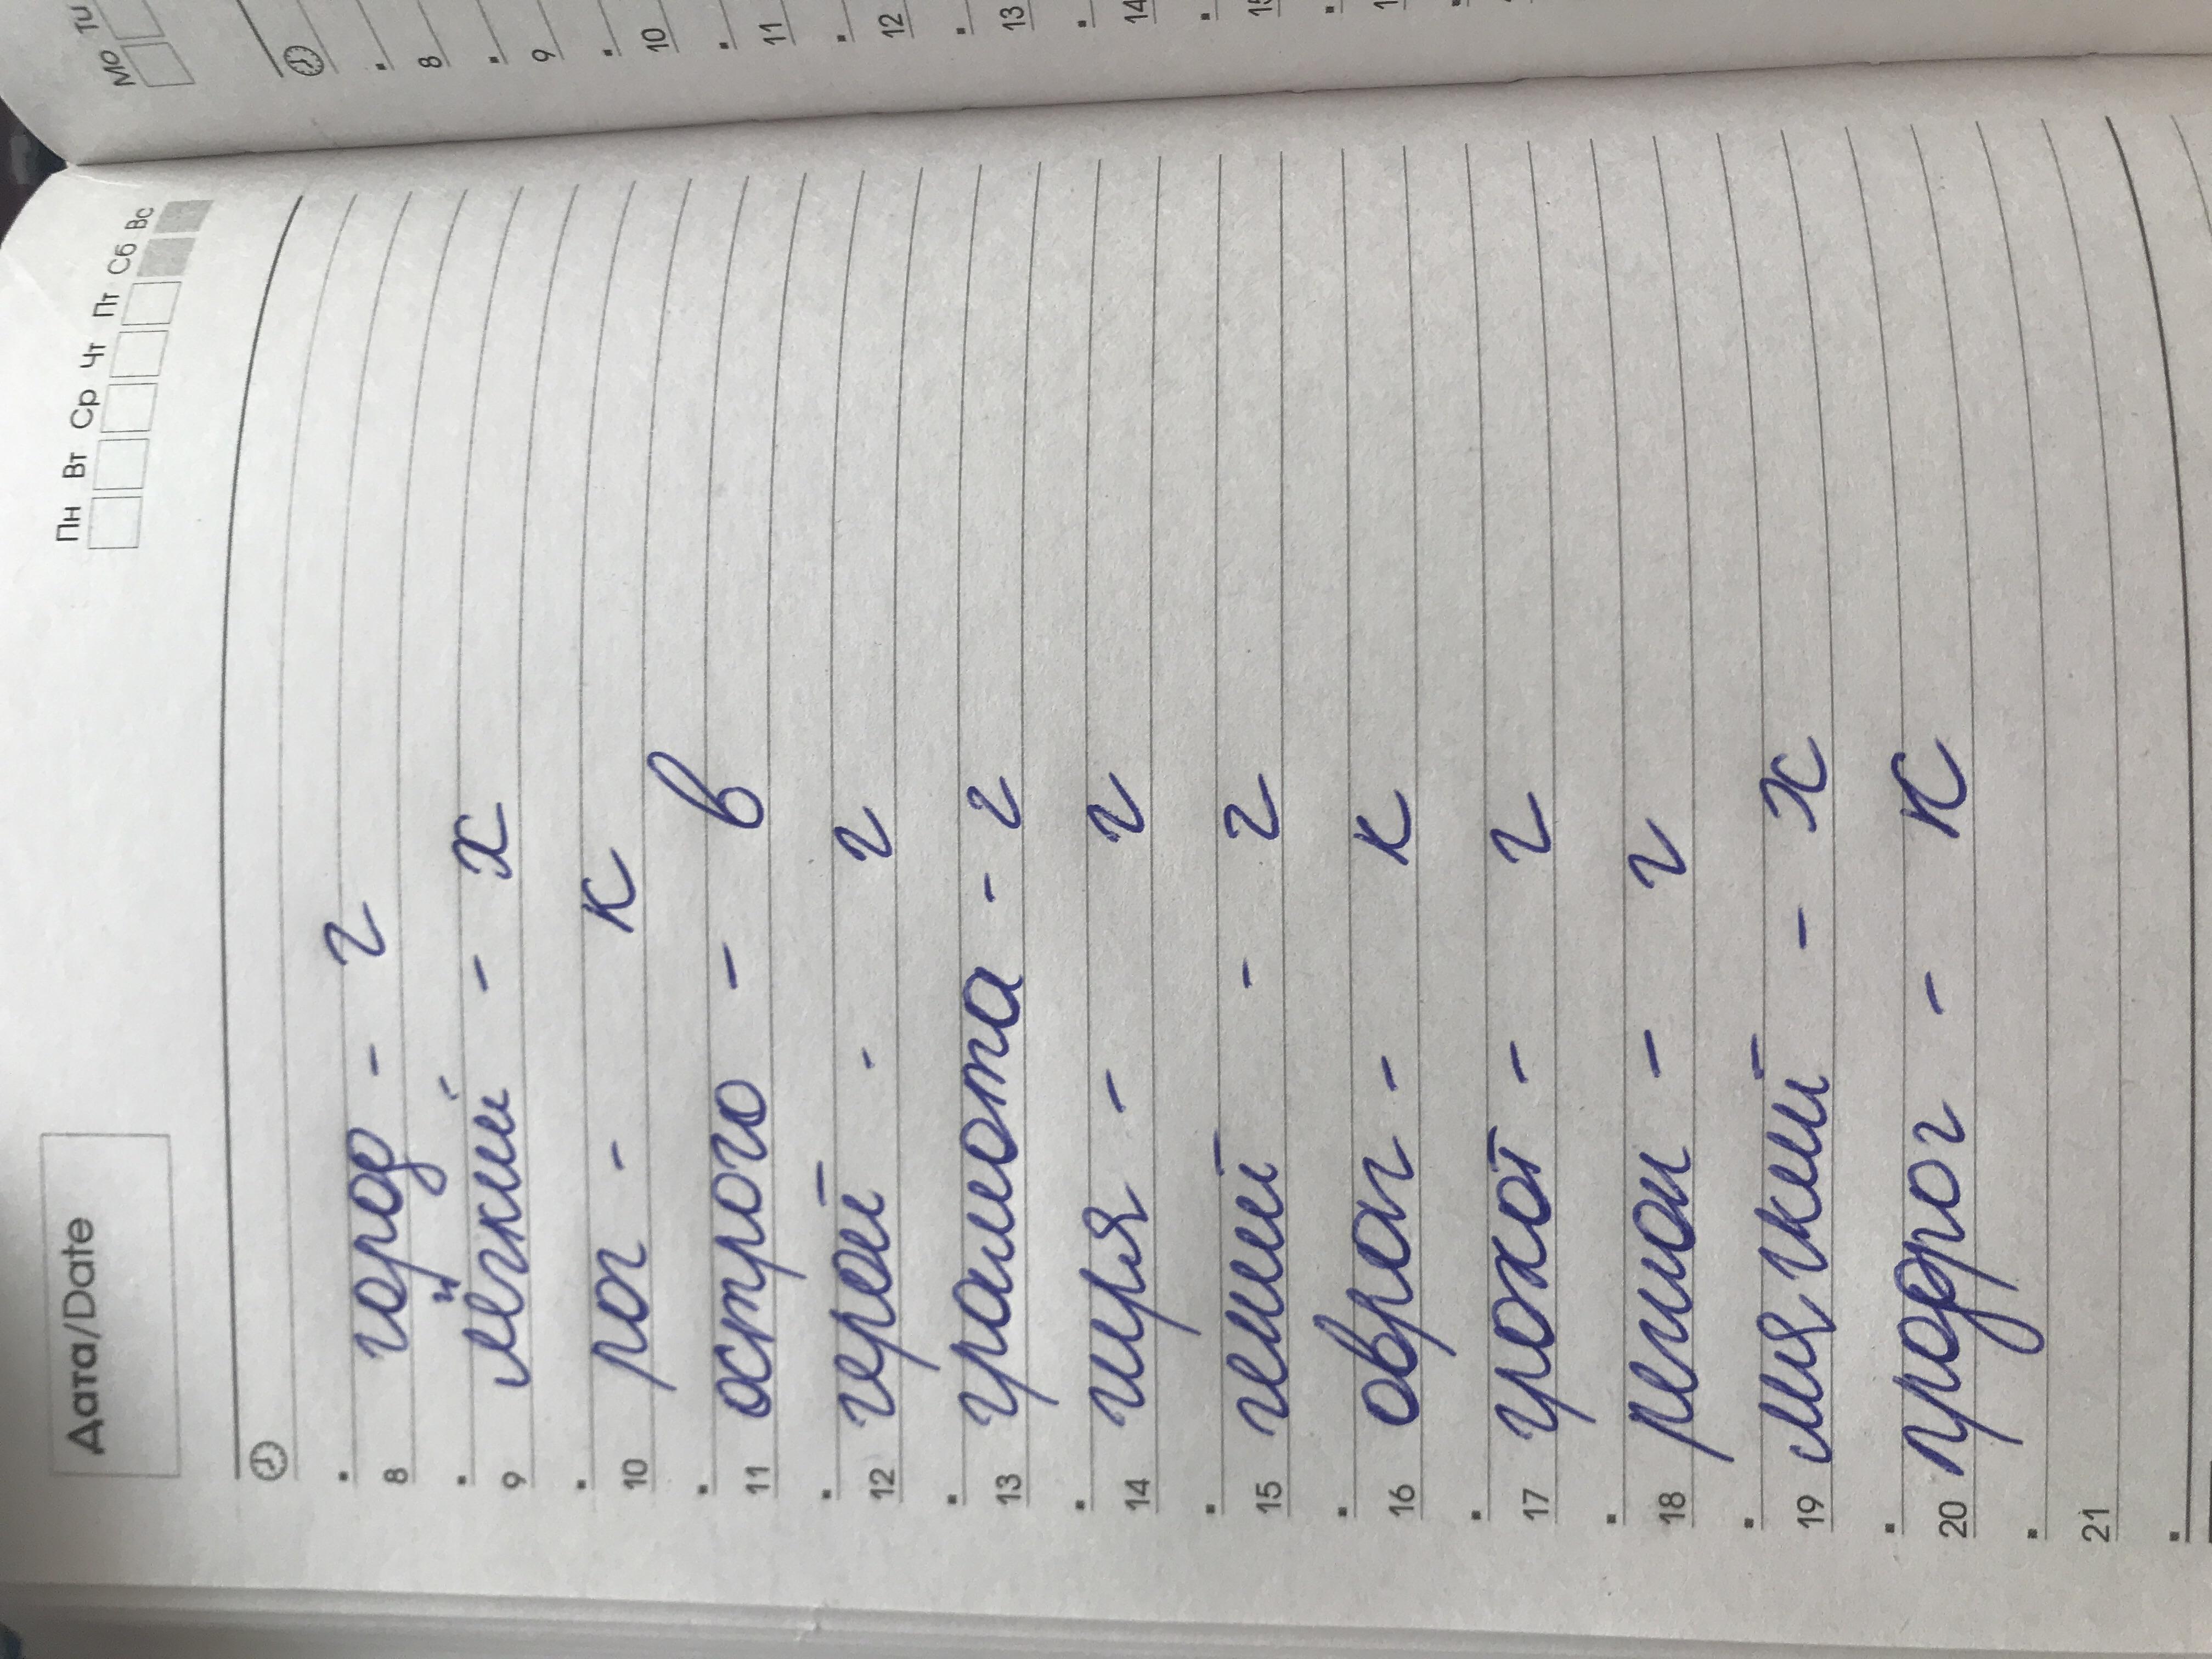 Mo Tu
8
9
10
11
12
13
14
Дата/Date
Пн Вт Ср Чт Пт Сб Вс
8 город - г
9 лёгкий - х
10 рог - к
11 острого - в
12 герой - г
13 грамота - г
14 гиря - г
15 гений - г
16 овраг - к
17 грохот - г
18 регион - г
19 мягкий - х
20 продрог - к
21